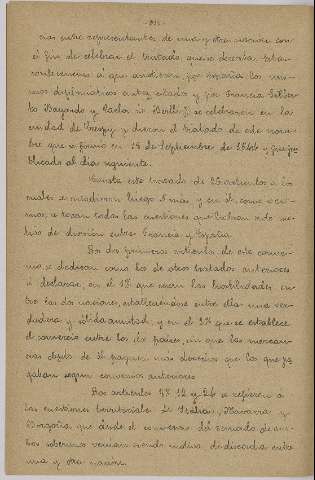 nas entre representantes de una y otra nacion con
el fin de celebrar el tratado que se deseaba. Estas
conferencias a que asistieron, por España los mis-
mos diplomáticos antes citados y por Francia
Bayardo y Carlos se celebraron en la
ciudad de Crespy y dieron el tratado de este nom-
bre que se firmó en 18 de Septiembre de 1544 y fue pu-
blicado al día siguiente.
Consta este tratado de 25 articulos a los
cuales se añadieron luego y en el, como veré-
mos, se tocan todas las cuestiones que habian sido mo-
tivo de division entre Francia y España.
Los dos primeros articulos de este conve-
nio, se dedican como los de otros tratados anteriores
a declarar, en el 1º que cesan las hostilidades en-
tre las dos naciones, estableciendose entre ellas una ver-
dadera y sólida amistad, y en el 2º que se establece
el comercio entre los dos paises, sin que las mercan-
cias de el paguen mas derechos que los que pa-
gaban segun convenios anteriores.
Los articulos 12 y 24 se refieren a
las cuestiones territoriales de Italia, Navarra y
Borgoña que desde el comienzo del reinado de am-
bos soberanos venian siendo motivo de discordia entre
una y otra nacion.